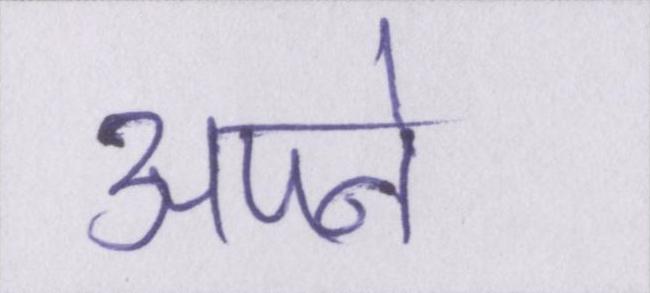 अपने